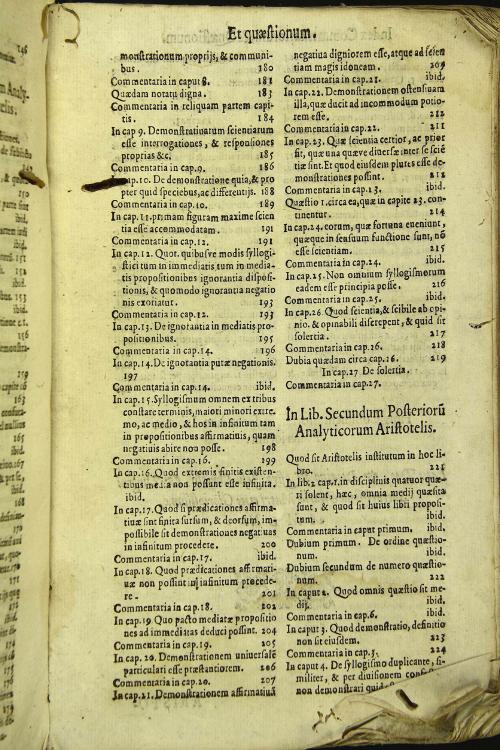 Et quæstionum.
monstrationum proprijs, & communi-
bus. 180
Commentaria in caput 8. 181
Quædam notatu digna. 183
Commentaria in reliquam partem capi-
tis. 184
In cap 9. Demonstratiuarum scientiarum
esse interrogationes, & responsiones
proprias &c. 185
Commentaria in cap.9. 186
cap.10. De demonstratione quia, & pro
pter quid speciebus, ac differentijs. 188
Commentaria in cap.10. 189
In cap.11.primam figuram maxime scien
tia esse accomodatam. 191
Commentaria in cap.12. 191
In cap.12. Quot.quibusve modis syllogi-
stici tum in immediatis tum in media-
tis propositionibus ignorantia disposi-
tionis, & quomodo ignorantia negatio
nis exoriatur. 193
Commentaria in cap.12. 193
In cap.13. De ignorantia in mediatis pro-
positionibus. 195
Commentaria in cap.14. 196
In cap.14.De ignorantia putæ negationis.
197
Commentaria in cap.14. ibid.
In cap.15.Syllogismum omnem ex tribus
constare terminis, maiori minori extre-
mo, ac medio, & hos in infinitum tam
in propositionibus affirmatiuis, quam
negatiuis abire non posse. 198
Commentaria in cap.16. 199
In cap.16.Quod extremis finitis existen-
tibus media non possunt esse infinita.
ibid.
In cap.17.Quod si prædicationes affirma-
tiuæ sint finita sursum, & deorsum, im-
possibile sit demonstrationes negatiuas
in infinitum procedere. 200
Commentaria in cap.17. ibid.
In cap.18. Quod prædicationes affirmati-
uæ non possint in infinitum procede-
re. 201
Commentaria in cap.18. 202
In cap.19 Quo pacto mediatæ propositio
nes ad immediatas deduci possint. 204
Commentaria in cap.19. 205
In cap. 20. Demonstrationem uniuersalē
particulari esse præstantiorem. 206
Commentaria in cap.20. 207
In cap.21.Demonstrationem affirmatiuā
negatiua digniorem esse, atque ad scien
tiam magis idoneam. 209
Commentaria in cap.21. ibid.
In cap.22. Demonstrationem ostensiuam
illa, quæ ducit ad incommodum potio-
rem esse. 212
Commentaria in cap.22. 211
In cap.23. Quæ scientia certior, ac prior
sit, quæ una quæve diuersæ inter se scié
tiæ sint. Et quod eiusdem plures esse de-
monstrationes possint. 212
Commentaria in cap.13. ibid.
Quæstio 1.circa ea, quæ in capite 23. con-
tinentur. 214
In cap.24. eorum, quæ fortuna eueniunt,
quæque in sensuum functione sunt, nō
esse scientiam. 215
Commentaria in cap.24. ibid.
In cap.25. Non omnium syllogismorum
eadem esse principia posse. 216
Commentaria in cap.25. ibid.
In cap.26 Quod scientia, & scibile ab opi-
nio. & opinabili discrepent, & quid sit
solertia. 217
Commentaria in cap.26. 218
Dubia quædam circa cap.26. 219
In cap.27 De solertia.
Commentaria in cap.27.
In Lib. Secundum Posteriorū
Analyticorum Aristotelis.
Quod sit Aristotelis institutum in hoc li-
bro. 221
In lib.2 cap.1.in disciplinis quatuor quæ-
ri solent, hæc, omnia medij quæsita
sunt, & quod sit huius libri proposi-
tum. ibid.
Commentaria in caput primum. ibid.
Dubium primum. De ordine quæstio-
num. ibid.
Dubium secundum de numero quæstio-
num. 222
In caput 2. Quod omnis quæstio sit me-
dij. ibid.
Commentaria in cap.6. ibid.
In caput 3. Quod demonstratio, definitio
non sit eiusdem. 223
Commentaria in cap.3. 224
In caput 4. De syllogismo duplicante, si-
militer, & per diuisionem
non demonstrari